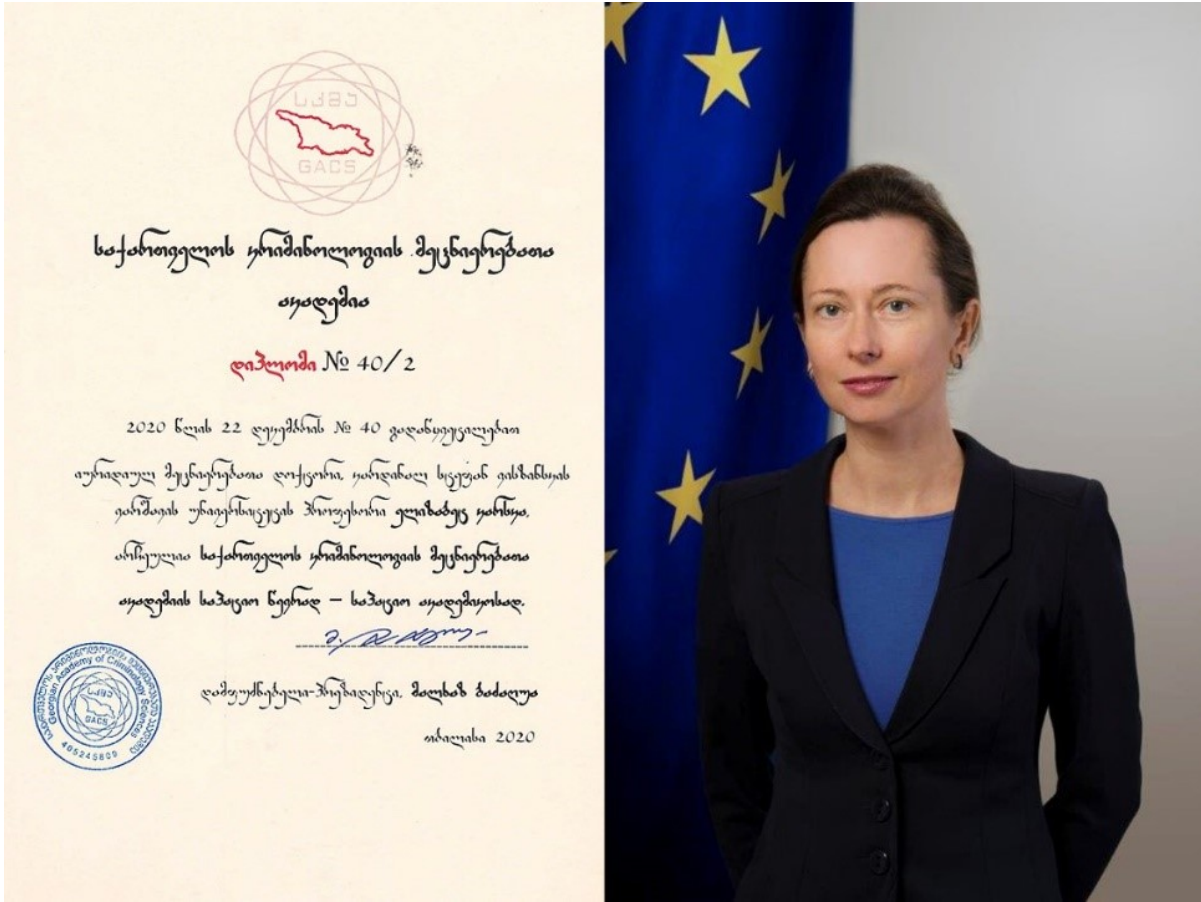 სკმა
GACS
საქართველოს კრიმინოლოგიის მეცნიერებათა
აკადემია
დიპლომი № 40/2
2020 წლის 22 დეკემბრის № 40 გადაწყვეტილებით
იურიდიულ მეცნიერებათა დოქტორი, კარდინალ სტეფან ვისზინსკის
ვარშავის უნივერსიტეტის პროფესორი ელიზაბეტ კარსკა,
არჩეულია საქართველოს კრიმინოლოგიის მეცნიერებათა
აკადემიის საპატიო წევრად – საპატიო აკადემიკოსად.
დამფუძნებელი-პრეზიდენტი, მალხაზ ბადაღუა
თბილისი 2020
საქართველოს კრიმინოლოგიის მეცნიერებათა აკადემია
Georgian Academy of Criminology Sciences
სკმა
GACS
405245809